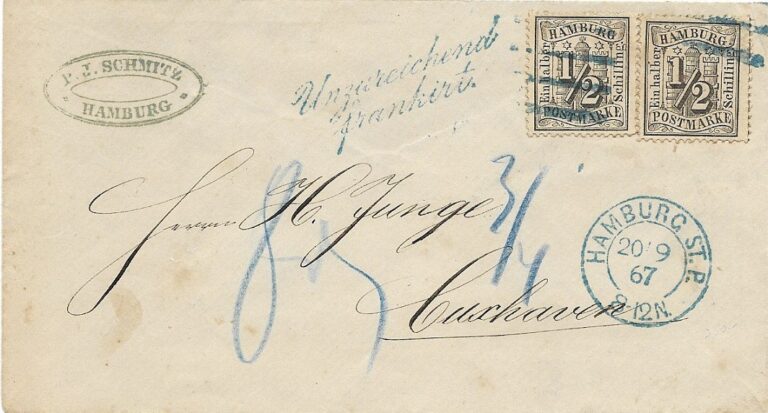 P. J. SCHMITZ
HAMBURG
Unzureichend
frankirt.
HAMBURG
Ein halber
1/2
Schilling
POSTMARKE
HAMBURG
Ein halber
1/2
Schilling
POSTMARKE
Herrn H. Junge
Cuxhaven
HAMBURG. ST. P.
20/9
67
8-12N.